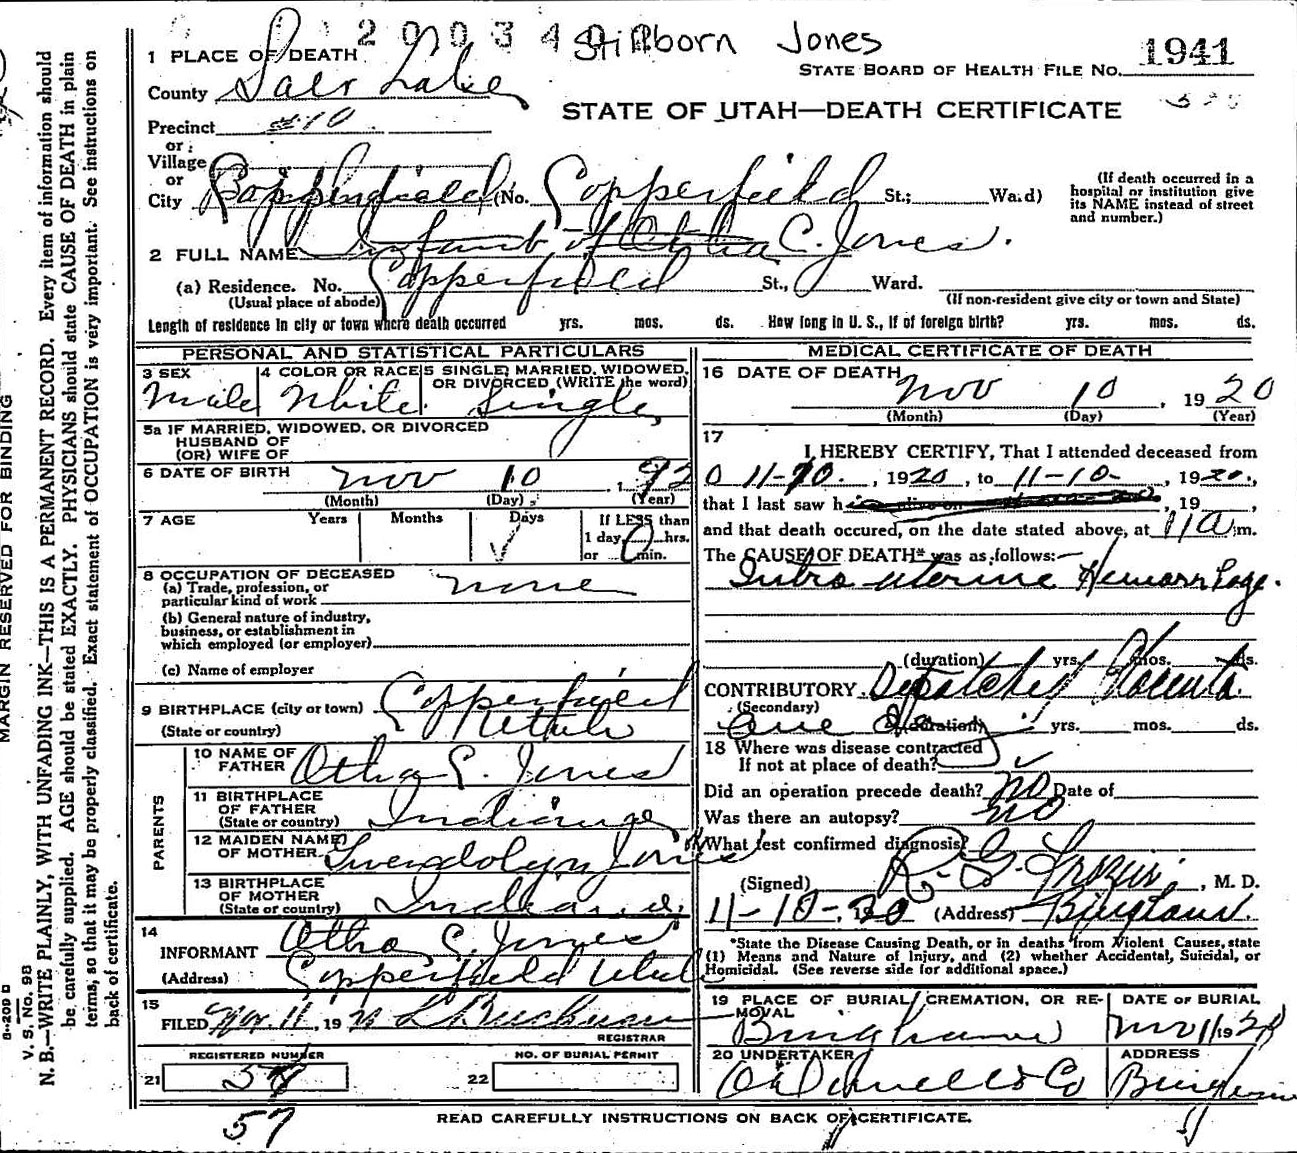 2 0 0 3 4 0 Stillborn Jones
1941
1 PLACE OF DEATH
STATE BOARD OF HEALTH FILE NO.
County Salt Lake
STATE OF UTAH—DEATH CERTIFICATE
Precinct #10
or
Village
or
City Copperfield (No. Copperfield St.; Ward)
(If death occurred in a
hospital or institution give
its NAME instead of street
and number.)
2 FULL NAME Infant of Otha C. Jones.
(a) Residence. No. Copperfield St., Ward.
(Usual place of abode) (If non-resident give city or town and State)
Length of residence in city or town where death occurred yrs. mos. ds. How long in U. S., if of foreign birth? yrs. mos. ds.
PERSONAL AND STATISTICAL PARTICULARS
3 SEX 4 COLOR OR RACE 5 SINGLE, MARRIED, WIDOWED,
OR DIVORCED (WRITE the word)
Male White Single
5a IF MARRIED, WIDOWED, OR DIVORCED
HUSBAND OF
(OR) WIFE OF
6 DATE OF BIRTH Nov 10, 192
(Month) (Day) (Year)
7 AGE Years Months Days If LESS than
1 day 0 hrs.
or min.
8 OCCUPATION OF DECEASED none
(a) Trade, profession, or
particular kind of work
(b) General nature of industry,
business, or establishment in
which employed (or employer)
(c) Name of employer
9 BIRTHPLACE (city or town) Copperfield
(State or country) Utah
PARENTS
10 NAME OF
FATHER Otha C. Jones
11 BIRTHPLACE
OF FATHER
(State or country) Indiana
12 MAIDEN NAME
OF MOTHER Gwendolyn Jones
13 BIRTHPLACE
OF MOTHER
(State or country) Indiana
14
INFORMANT Otha C. Jones
(Address) Copperfield Utah
15
FILED Nov. 11, 19 20
REGISTRAR
REGISTERED NUMBER NO. OF BURIAL PERMIT
21 22
57
MEDICAL CERTIFICATE OF DEATH
16 DATE OF DEATH
Nov 10, 19 20
(Month) (Day) (Year)
17
I HEREBY CERTIFY, That I attended deceased from
11-10, 1920, to 11-10-, 1920,
that I last saw h alive on , 19 ,
and that death occured, on the date stated above, at 11 a m.
The CAUSE OF DEATH* was as follows:—
Intra uterine Hemorrhage.
(duration) yrs. mos. ds.
CONTRIBUTORY Detatched Placenta
(Secondary)
(duration) yrs. mos. ds.
18 Where was disease contracted
If not at place of death?
Did an operation precede death? no Date of
Was there an autopsy? no
What test confirmed diagnosis?
(Signed) R. G. , M. D.
11-10-20 (Address) Bingham.
*State the Disease Causing Death, or in deaths from Violent Causes, state
(1) Means and Nature of Injury, and (2) whether Accidental, Suicidal, or
Homicidal. (See reverse side for additional space.)
19 PLACE OF BURIAL, CREMATION, OR RE-
MOVAL
Bingham
DATE OF BURIAL
Nov 11 1920
20 UNDERTAKER
O'Donnell & Co
ADDRESS
Bingham
READ CAREFULLY INSTRUCTIONS ON BACK OF CERTIFICATE.
MARGIN RESERVED FOR BINDING
V. S. No. 98
N. B.—WRITE PLAINLY, WITH UNFADING INK—THIS IS A PERMANENT RECORD. Every item of information should
be carefully supplied. AGE should be stated EXACTLY. PHYSICIANS should state CAUSE OF DEATH in plain
terms, so that it may be properly classified. Exact statement of OCCUPATION is very important. See instructions on
back of certificate.